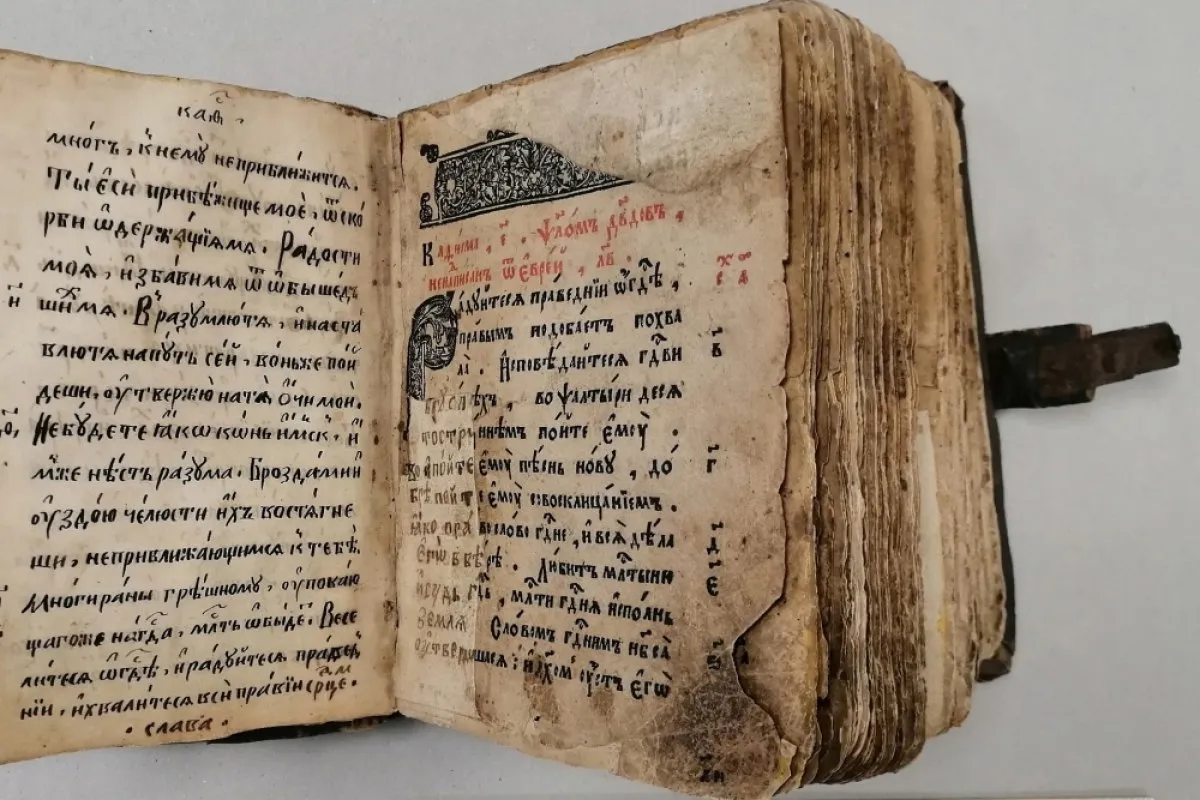 каѳ
мно́гъ, к нему̀ неприбли́жится.
Ты̀ є҆сѝ прибѣ́жище моѐ, ѿ ско́
рби ѡ҆держа́щїѧ мѧ. Ра́дости
моѧ̀, и҆зба́ви мѧ ѿ ѡ҆быше́дъ
шиⷯ мѧ. Вразумлю́ тѧ, и҆ наста́
влю тѧ на пу́ть се́й, во́ньже пои́
деши, ᲂу҆твержю̀ на тѧ̀ ѻ҆́чи моѝ.
Не бу́дете ꙗ҆́ко ко́нь и҆ мскъ, и҆́
мже нѣ́сть ра́зума. Брозда́ми и҆
ᲂу҆здо́ю че́люсти и҆́хъ востѧ́гне
ши, неприближа́ющимсѧ к тебѣ̀.
Мно́ги ра́ны грѣ́шному, ᲂу҆пова́ю
щаго же на гдⷭ҇а, млⷭ҇ть ѡ҆бы́де. Весе
ли́тесѧ ѡ҆ гдⷭ҇ѣ, и҆ ра́дуйтесѧ пра́вед
нїи, и҆ хвали́тесѧ всѝ пра́вїи срⷣцеⷨ.
слава
Каѳи́сма, є҃. Ѱало́мъ дв҃довъ,
не напи́санъ ѿ є҆вре́й, л҃в.
Ра́дуйтесѧ пра́веднїи ѡ҆ гдⷭ҇ѣ,
пра́вымъ подоба́етъ похва
ла̀. И҆сповѣ́дайтесѧ гдⷭ҇ви
в гу́слехъ, во ѱалты́ри десѧ
тостру́ннѣмъ по́йте є҆мꙋ̀.
Воспо́йте є҆мꙋ̀ пѣ́снь но́ву, до́
брѣ по́йте є҆мꙋ̀ со восклица́нїемъ.
Ꙗ҆́ко пра́во сло́во гдⷭ҇не, и҆ всѧ̀ дѣ́ла
є҆гѡ̀ в вѣ́рѣ. Лю́битъ млⷭ҇тыню
и҆ су́дъ гдⷭ҇ь, млⷭ҇ти гдⷭ҇нѧ и҆спо́лнь
землѧ̀. Сло́вомъ гдⷭ҇нимъ нб҃са̀
ᲂу҆тверди́шасѧ, и҆ дх҃омъ ᲂу҆́стъ є҆гѡ̀